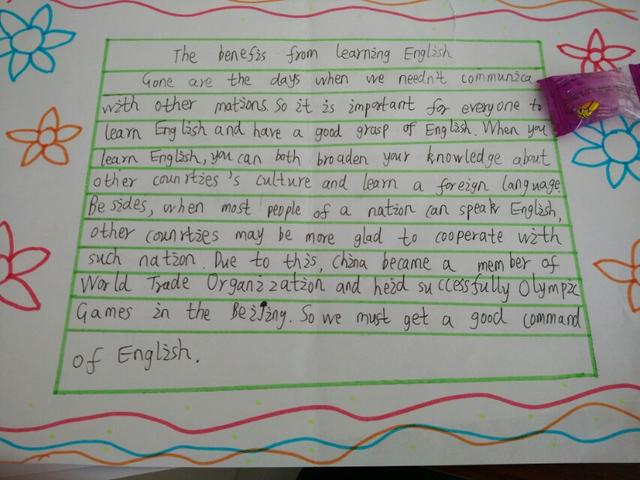 The benefis from learning English
Gone are the days when we needn't communica
with other mations. So it is important for everyone to
learn English and have a good grasp of English. When you
learn English, you can both broaden your knowledge about
other counrties's culture and learn a foreign language
Besides, when most people of a nation can speak English,
other counrties may be more glad to cooperate with
such nation. Due to this, china became a member of
World Trade Organization and held successfully Olympic
Games in the Beijing. So we must get a good command
of English.